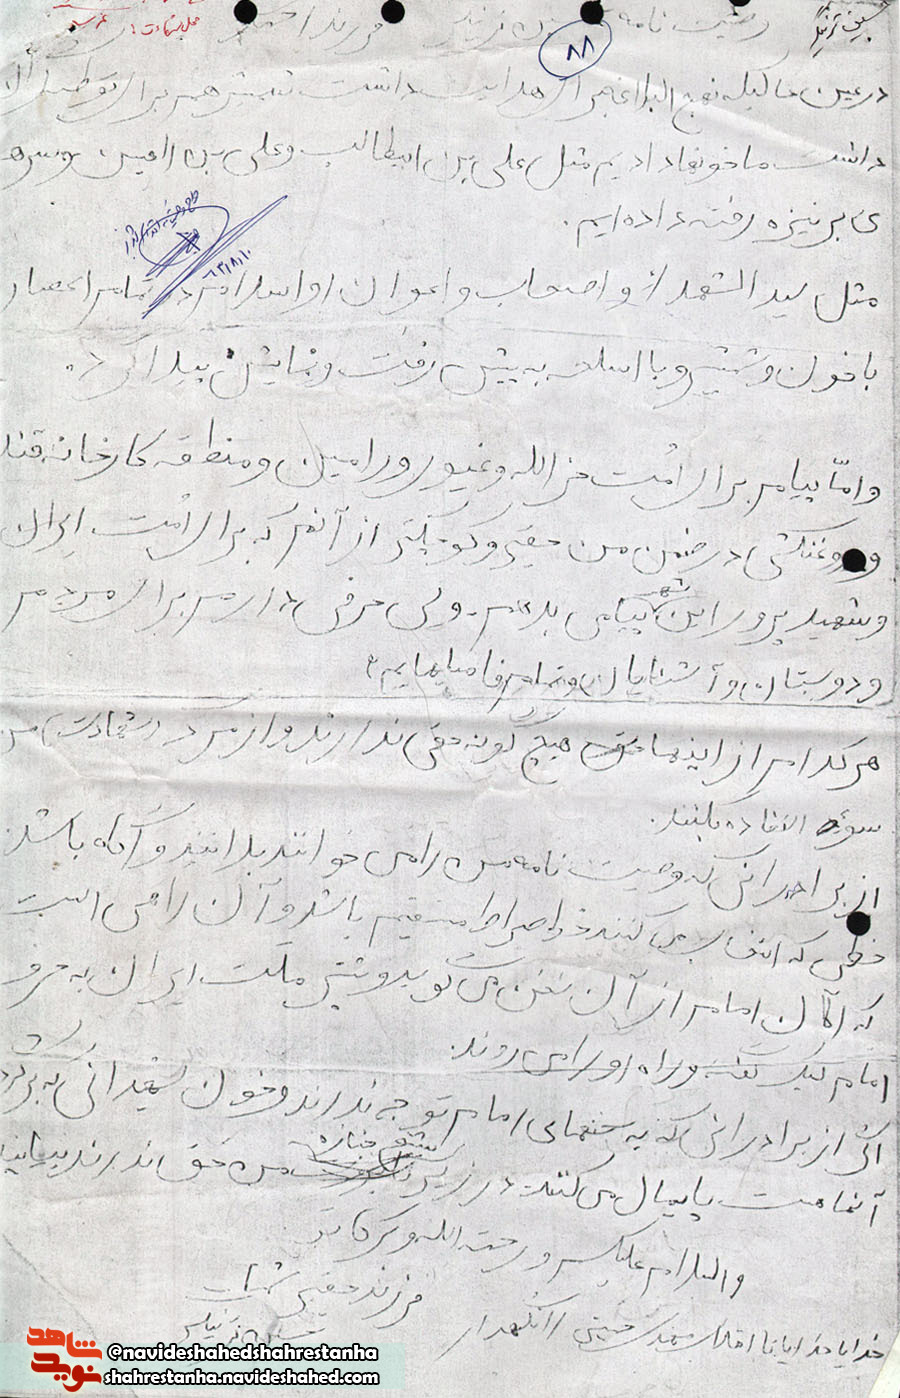 وصیت نامه
۸۸
در عین حالیکه نهج البلاغه برای هدایت داشت، شمشیر هم برای
داشت ما خونها دادیم مثل علی بن ابیطالب و علی بن الحسین، و سرها
ی بر نیزه رفته داده ایم.
مثل سید الشهدا و اصحاب و اعوان او اسلام در تمام اعصار
با خون و شمشیر و با اسلحه به پیش رفت و نمایش پیدا کرد.
و امّا پیام برای امُت حزب الله و غیور ورامین و منطقه کارخانه قند
و روغنکشی در ضمن من حقیر و کوچکتر از آنم که برای امُت ایران
و شهید پرور این شهر پیامی بدهم. ولی حرفی دارم برای مردم
و دوستان و آشنایان و تمام فامیلهایم
هر کدام از اینها هیچ گونه حقی ندارند و از مرگ و شهادت من
سوء الاستفاده بکنند.
از برادرانی که وصیت نامه من را می خوانند بدانند و آگاه باشند
خطی که انتخاب می کنند خط صراط مستقیم باشد و آن راهی است
که الآن امام از آن سخن می گوید و ملت ایران به حرف
امام لبیک گفته و راه او را می روند.
اگر از برادرانی که به سخنهای امام توجه ندارند و خون شهیدانی که بر گردن
آنها هست پایمال می کنند در زیر تشیع جنازه من حق ندارند بیایند
والسلام علیکم و رحمته الله و برکاته
فرزند حقیر شما
خدایا خدایا تا انقلاب مهدی خمینی را نگهدار
شاهد
نوید
@navideshahedshahrestanha
shahrestanha.navideshahed.com